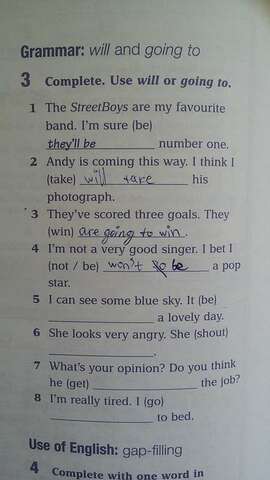 Grammar: will and going to
3 Complete. Use will or going to.
1 The StreetBoys are my favourite
band. I'm sure (be)
they'll be number one.
2 Andy is coming this way. I think I
(take) will take his
photograph.
3 They've scored three goals. They
(win) are going to win.
4 I'm not a very good singer. I bet I
(not / be) won't be a pop
star.
5 I can see some blue sky. It (be)
____________ a lovely day.
6 She looks very angry. She (shout)
____________.
7 What's your opinion? Do you think
he (get) ____________ the job?
8 I'm really tired. I (go)
____________ to bed.
Use of English: gap-filling
4 Complete with one word in